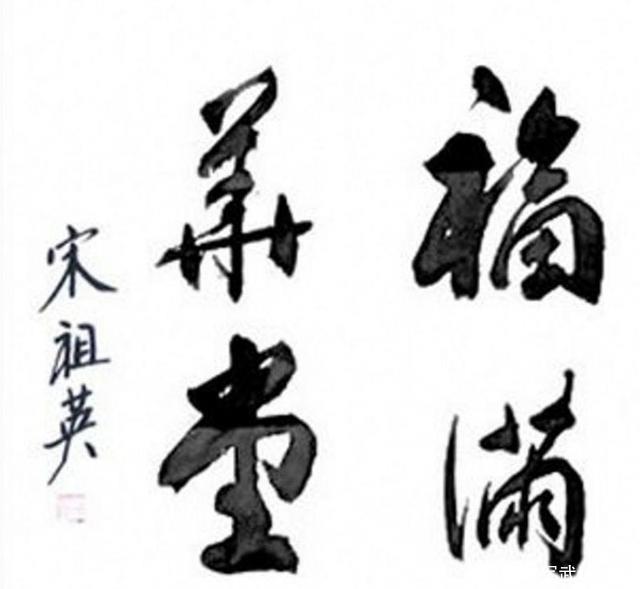 福满
华堂
宋祖英